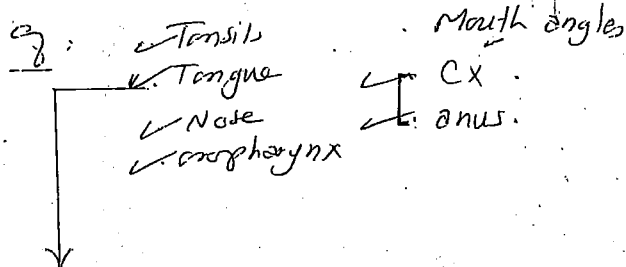 Tonsils
Tongue
Nose
oropharynx
Mouth angles
Cx.
anus.